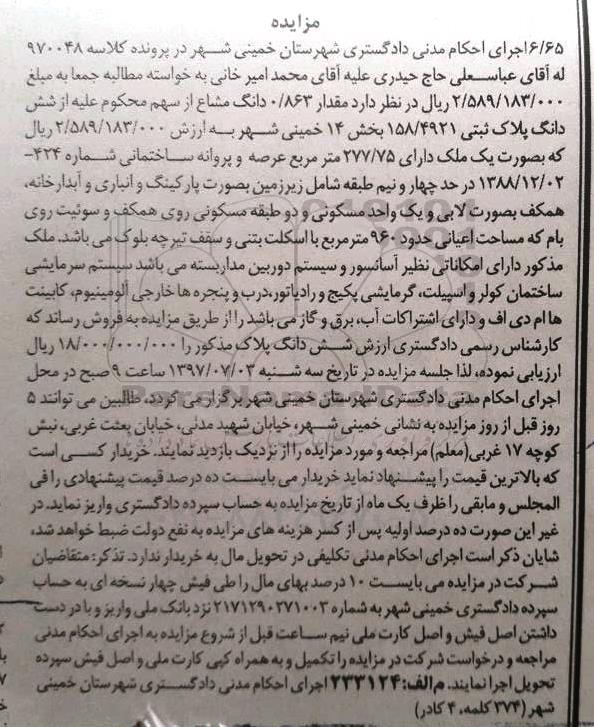 مزایده
۶/۶۵ اجرای احکام مدنی دادگستری شهرستان خمینی شهر در پرونده کلاسه ۹۷۰۰۴۸
له آقای عباسعلی حاج حیدری علیه آقای محمد امیر خانی به خواسته مطالبه جمعا به مبلغ
۲/۵۸۹/۱۸۳/۰۰۰ ریال در نظر دارد مقدار ۰/۸۶۳ دانگ مشاع از سهم محکوم علیه از شش
دانگ پلاک ثبتی ۱۵۸/۴۹۲۱ بخش ۱۴ خمینی شهر به ارزش ۲/۵۸۹/۱۸۳/۰۰۰ ریال
که بصورت یک ملک دارای ۲۷۷/۷۵ متر مربع عرصه و پروانه ساختمانی شماره ۴۲۴-
۱۳۸۸/۱۲/۰۲ در حد چهار و نیم طبقه شامل زیرزمین بصورت پارکینگ و انباری و آبدارخانه،
همکف بصورت لابی و یک واحد مسکونی و دو طبقه مسکونی روی همکف و سوئیت روی
بام که مساحت اعیانی حدود ۹۶۰ مترمربع با اسکلت بتنی و سقف تیرچه بلوک می باشد. ملک
مذکور دارای امکاناتی نظیر آسانسور و سیستم دوربین مداربسته می باشد سیستم سرمایشی
ساختمان کولر و اسپیلت، گرمایشی پکیج و رادیاتور، درب و پنجره ها خارجی آلومینیوم، کابینت
ها ام دی اف و دارای اشتراکات آب، برق و گاز می باشد را از طریق مزایده به فروش رساند که
کارشناس رسمی دادگستری ارزش شش دانگ پلاک مذکور را ۱۸/۰۰۰/۰۰۰/۰۰۰ ریال
ارزیابی نموده، لذا جلسه مزایده در تاریخ سه شنبه ۱۳۹۷/۰۷/۰۳ ساعت ۹ صبح در محل
اجرای احکام مدنی دادگستری شهرستان خمینی شهر برگزار می گردد، طالبین می توانند ۵
روز قبل از روز مزایده به نشانی خمینی شهر، خیابان شهید مدنی، خیابان بعثت غربی، نبش
کوچه ۱۷ غربی (معلم) مراجعه و مورد مزایده را از نزدیک بازدید نمایند. خریدار کسی است
که بالاترین قیمت را پیشنهاد نماید خریدار می بایست ده درصد قیمت پیشنهادی را فی
المجلس و مابقی را ظرف یک ماه از تاریخ مزایده به حساب سپرده دادگستری واریز نماید. در
غیر این صورت ده درصد اولیه پس از کسر هزینه های مزایده به نفع دولت ضبط خواهد شد،
شایان ذکر است اجرای احکام مدنی تکلیفی در تحویل مال به خریدار ندارد. تذکر: متقاضیان
شرکت در مزایده می بایست ۱۰ درصد بهای مال را طی فیش چهار نسخه ای به حساب
سپرده دادگستری خمینی شهر به شماره ۲۱۷۱۲۹۰۲۷۱۰۰۳ نزد بانک ملی واریز و با در دست
داشتن اصل فیش و اصل کارت ملی نیم ساعت قبل از شروع مزایده به اجرای احکام مدنی
مراجعه و درخواست شرکت در مزایده را تکمیل و به همراه کپی کارت ملی و اصل فیش سپرده
تحویل اجرا نمایند. م الف: ۲۳۳۱۲۴ اجرای احکام مدنی دادگستری شهرستان خمینی
شهر (۳۷۴ کلمه، ۴ کادر)